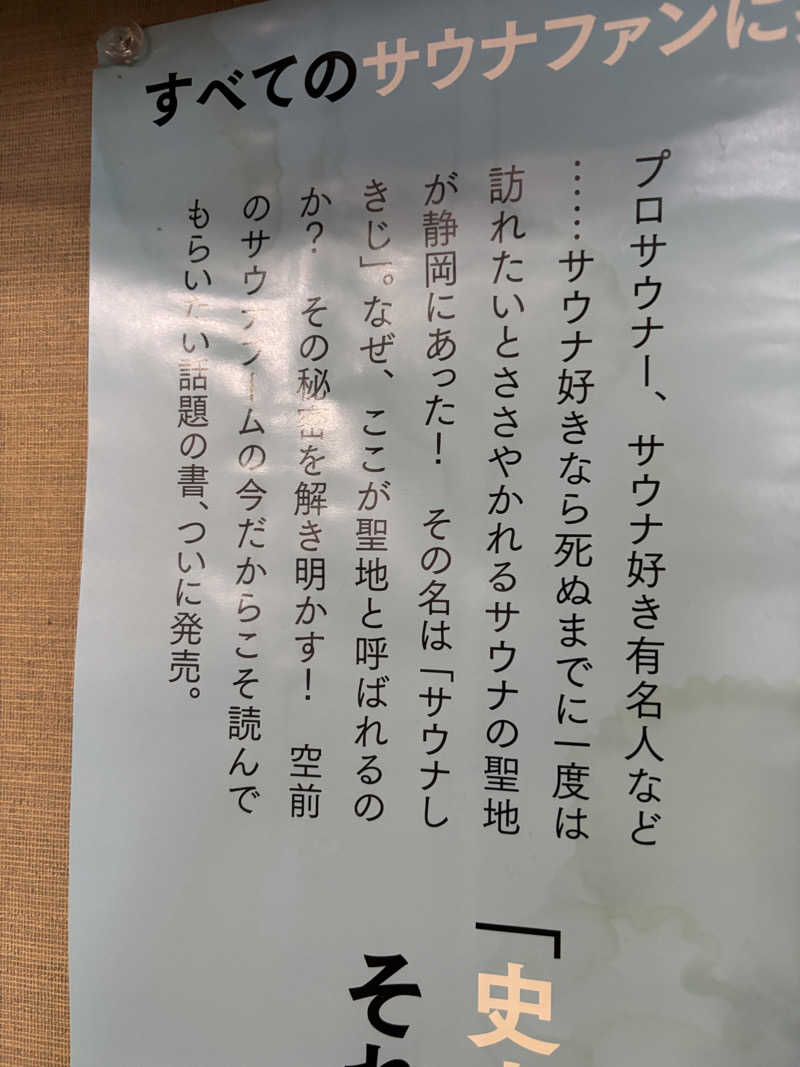 すべてのサウナファンに
プロサウナー、サウナ好き有名人など
……サウナ好きなら死ぬまでに一度は
訪れたいとささやかれるサウナの聖地
が静岡にあった！　その名は「サウナし
きじ」。なぜ、ここが聖地と呼ばれるの
か？　その秘密を解き明かす！　空前
のサウナブームの今だからこそ読んで
もらいたい話題の書、ついに発売。
「史
それ